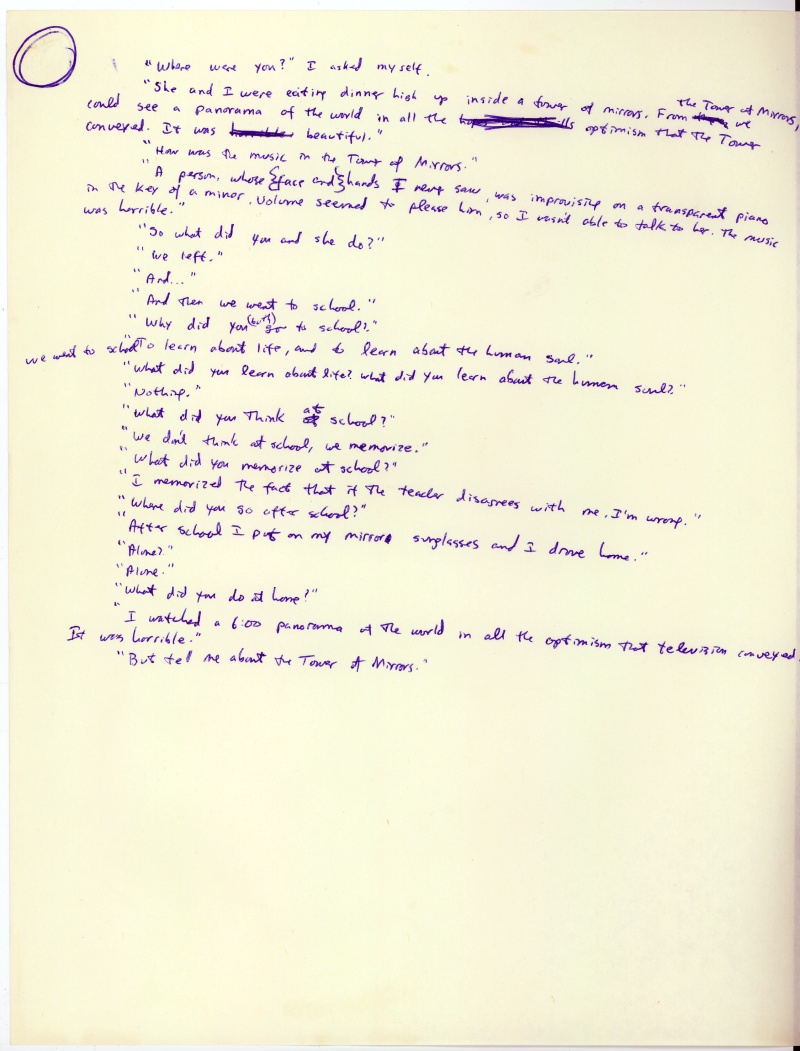 "Where were you?" I asked myself.
"She and I were eating dinner high up inside a tower of mirrors. From the Tower of Mirrors, we
could see a panorama of the world in all the optimism that the Tower
conveyed. It was beautiful."
"How was the music in the Tower of Mirrors."
"A person, whose {face and} hands I never saw, was improvising on a transparent piano
in the key of a minor. Volume seemed to please him, so I wasn't able to talk to her. The music
was horrible."
"So what did you and she do?"
"We left."
"And..."
"And then we went to school."
"Why did you (both) go to school?"
"We went to school To learn about life, and to learn about the human soul."
"What did you learn about life? What did you learn about the human soul?"
"Nothing."
"What did you think at school?"
"We don't think at school, we memorize."
"What did you memorize at school?"
"I memorized the fact that if the teacher disagrees with me, I'm wrong."
"Where did you go after school?"
"After school I put on my mirror sunglasses and I drove home."
"Alone?"
"Alone."
"What did you do at home?"
"I watched a 6:00 panorama of the world in all the optimism that television conveyed.
It was horrible."
"But tell me about the Tower of Mirrors."